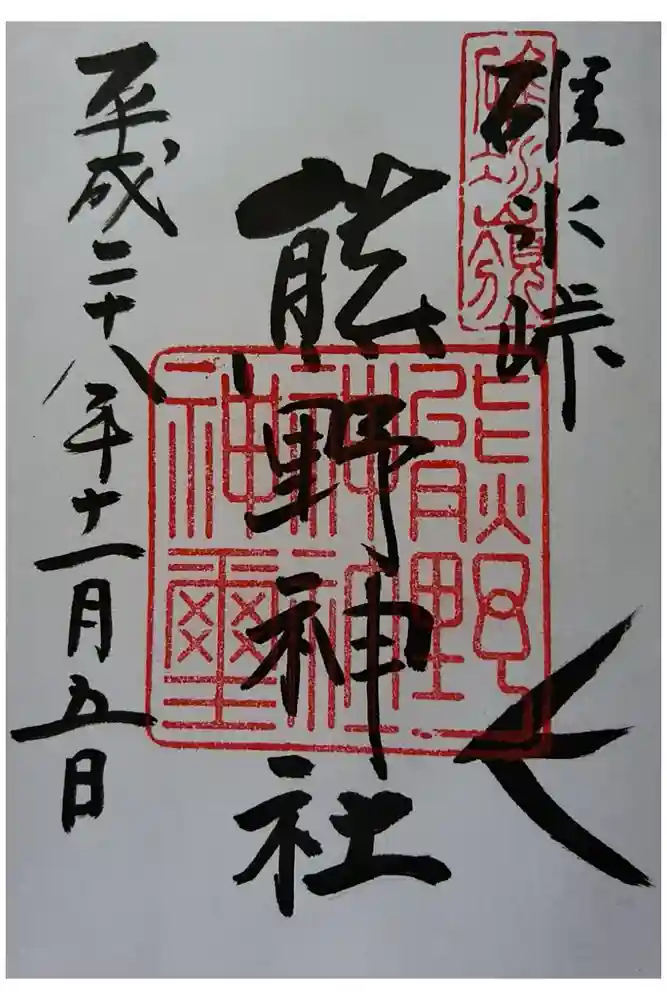 碓氷峠
碓氷嶺
熊野神社
熊野
神社
神璽
平成二十八年十一月五日